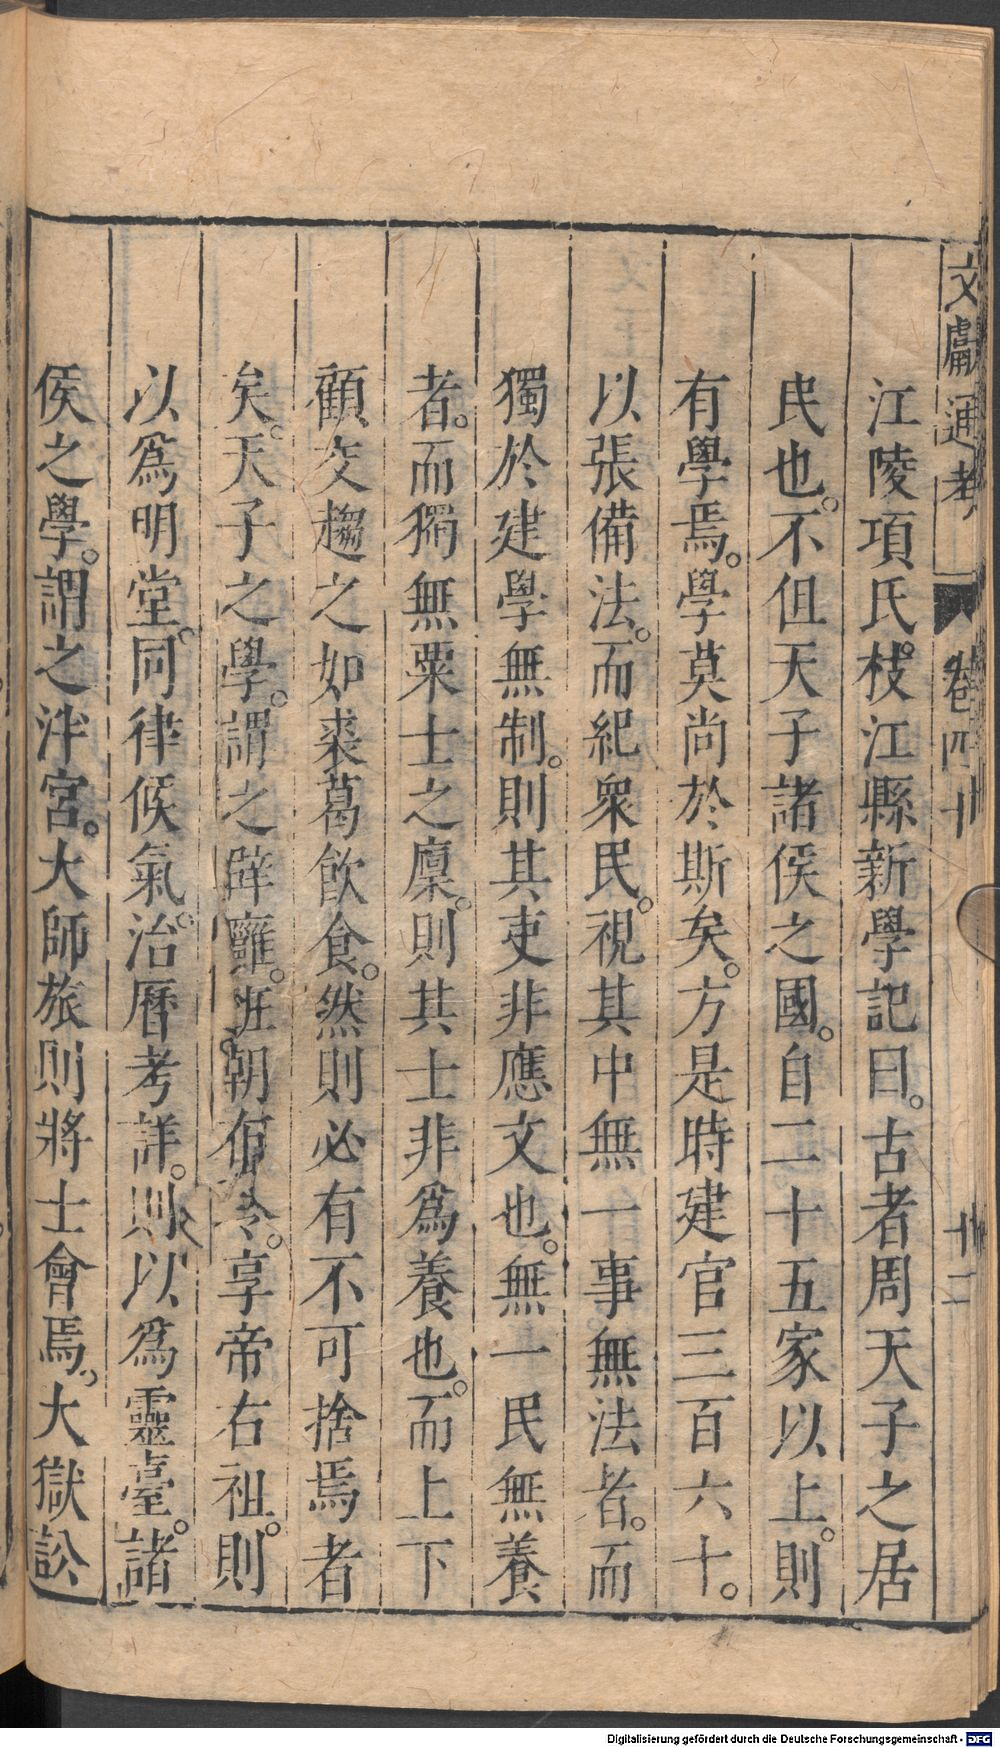 文獻通考 卷四十 十二
江陵項氏枝江縣新學記曰。古者周天子之居
民也。不但天子諸侯之國。自二十五家以上。則
有學焉。學莫尚於斯矣。方是時建官三百六十。
以張備法。而紀衆民。視其中無一事無法者。而
獨於建學無制。則其吏非應文也。無一民無養
者。而獨無粟士之廩。則其士非爲養也。而上下
顧交趨之如裘葛飲食。然則必有不可捨焉者
矣。天子之學。謂之辟雍。班朝布令。享帝右祖。則
以爲明堂。同律候氣。治曆考詳。則以爲靈臺。諸
侯之學。謂之泮宮。大師旅則將士會焉。大獄訟
Digitalisierung gefördert durch die Deutsche Forschungsgemeinschaft - DFG